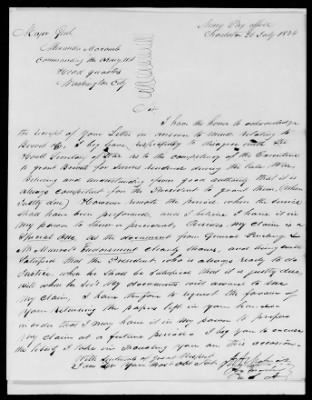 Army Pay office
Charleston 20 July 1834
Major Genl
Alexander Macomb
Commanding the Army US
Head quarters
Washington City
Sir
I have the honor to acknowledge
the receipt of your Letter in answer to mine relating to
Brevet &c, I beg leave respectfully to disagree with the
Hon'l Secretary of War as to the competency of the Executive
to grant Brevet for services rendered during the late War,
Believing and understanding from good authority that it is
always competent for the President to grant them, (when
justly due) However remote the period when the service
shall have been performed, and I believe I have it in
my power to show a precedent, Besides my claim is a
Special One, as the document from General
clearly shows, and being well
Satisfied that the President, who is always ready to do
Justice, when he shall be satisfied that it is justly due,
will when he sees my documents will award to me
my claim, I have therefore to request the favour of
your returning the papers left in your hands
in order that I may have it in my power to prefer
my claim at a future period. I beg you to excuse
the liberty I take in troubling you on this occasion.
With Sentiments of great Respect
I am Sir Your Most Obt Servt